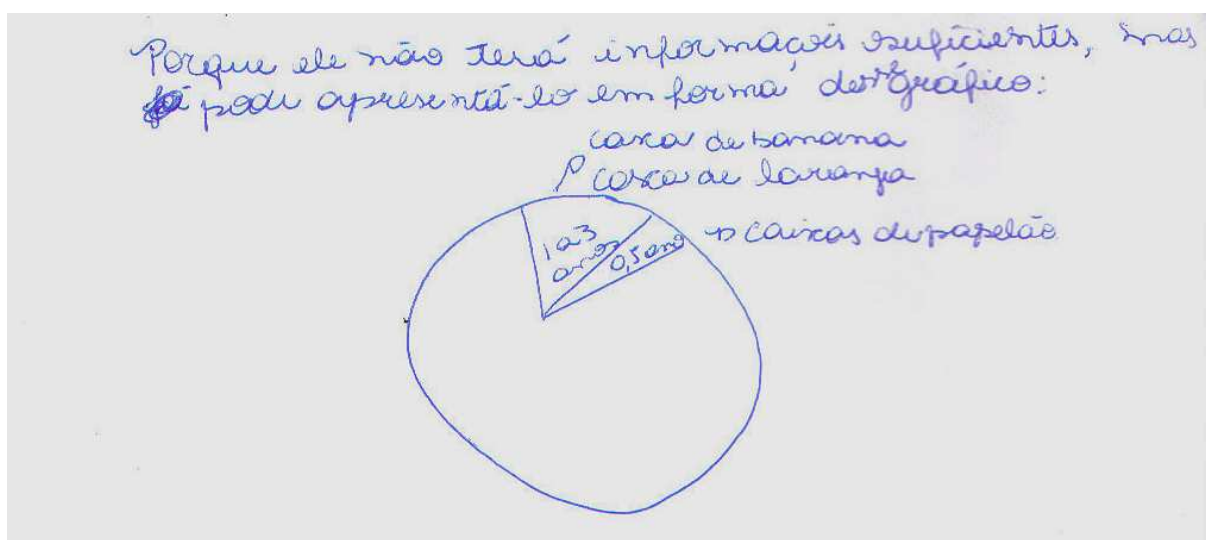 Porque ele não terá informações suficientes, mas
já pode apresentá-lo em forma de gráfico:
casca de banana
casca de laranja
1 a 3
anos
0,5 ano
caixas de papelão